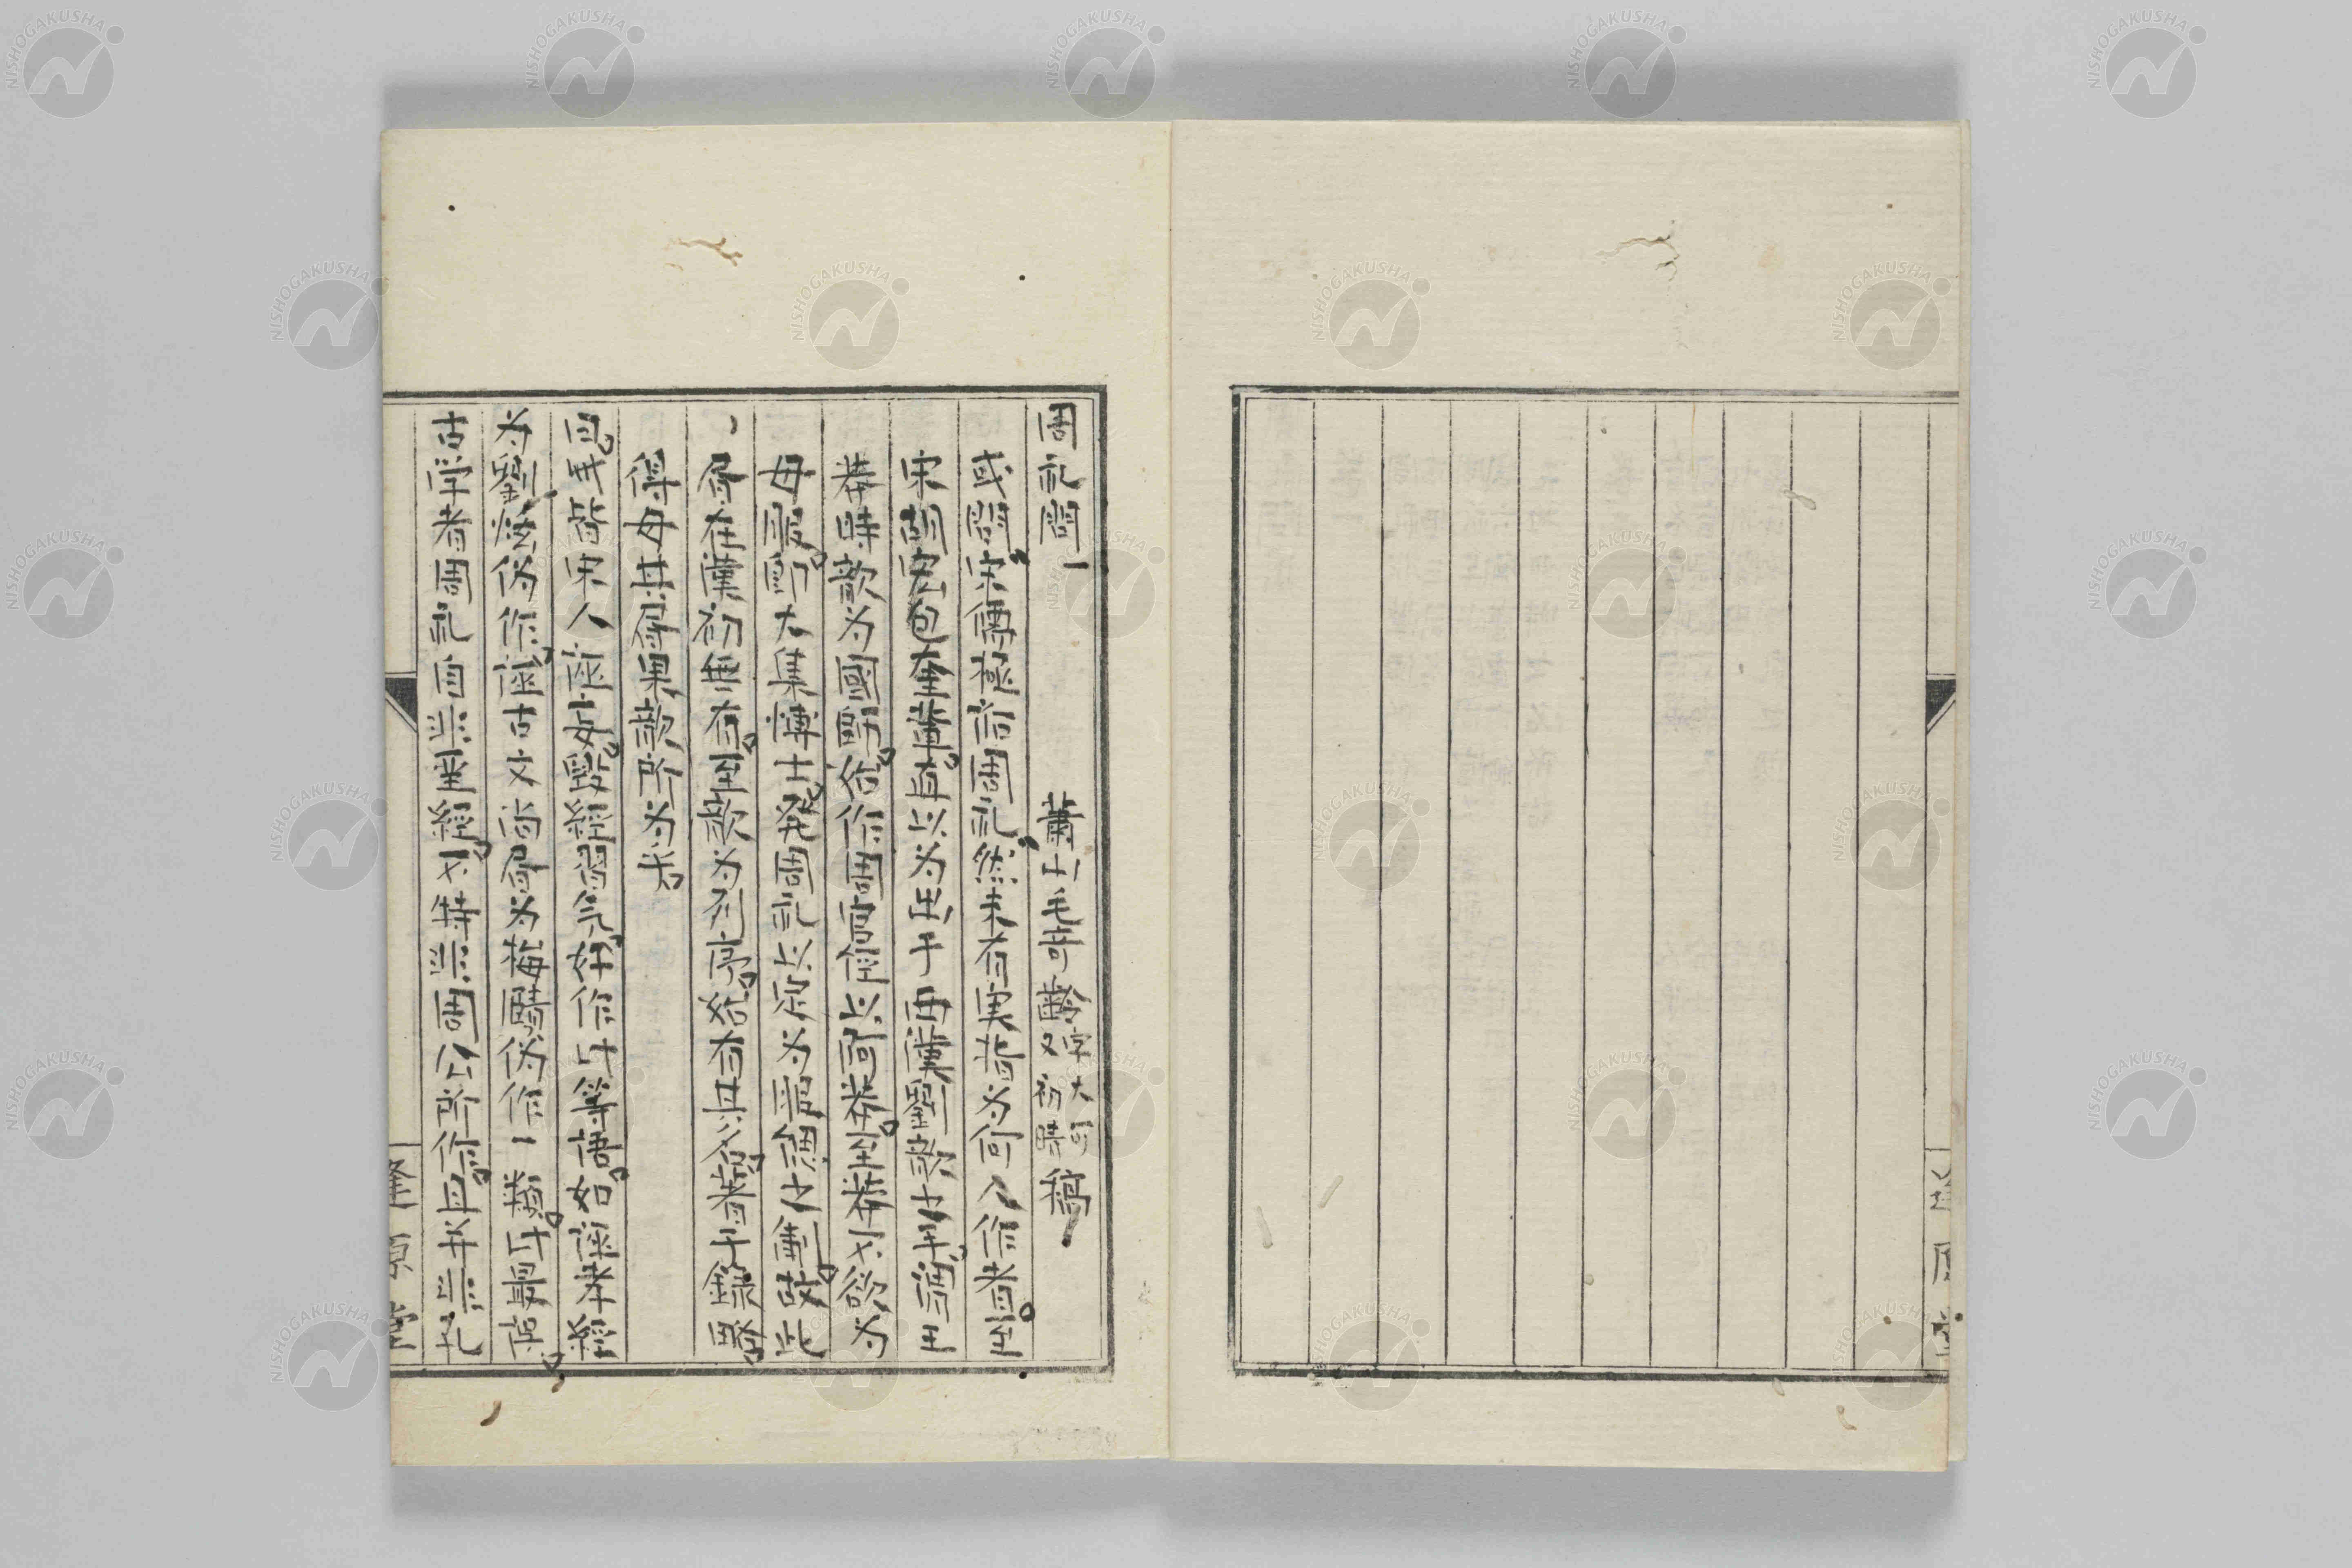 周礼問一
蕭山毛奇齡字大可又初晴稿
或問宋儒極詆周礼然未有実指為何人作者至
宋胡宏包奎輩直以為出于西漢劉歆大畧謂王
莽時歆為國師始作周官経以附莽至莽母死欲為
母服歆大集博士発周礼以定為服總十
在漢初無有至歆為列序始有其名著于錄畧
得毋其書果歆所為米
曰此皆宋人誣妄毀經習気好作此等語如誣孝經
为劉炫偽作誣古文尚書为梅賾偽作一類此最誤
古学者周礼自非聖經不特非周公所作且並非孔
NISHOGAKUSHA